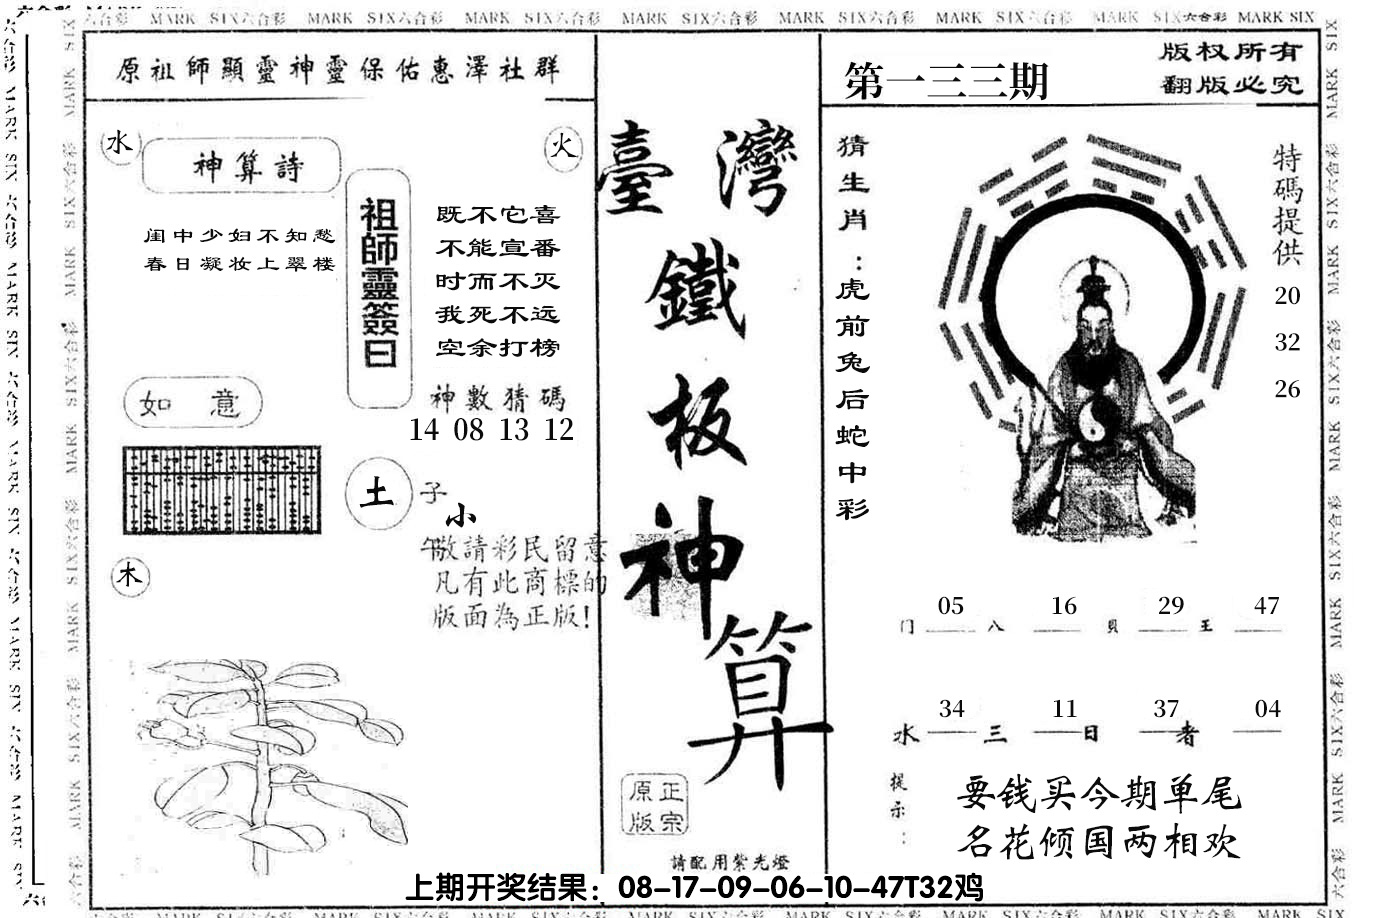 MARK SIX六合彩 MARK SIX六合彩 MARK SIX六合彩 MARK SIX六合彩 MARK SIX六合彩 MARK SIX六合彩 MARK SIX六合彩 MARK SIX
原祖師顯靈神靈保佑惠澤社群
水
神算詩
火
闺中少妇不知愁
春日凝妆上翠楼
祖師靈簽曰
既不它喜
不能宣番
时而不灭
我死不远
空余打榜
神數猜碼
14 08 13 12
如意
土
子
小
午
敬請彩民留意
凡有此商標的
版面為正版!
木
臺灣
鐵
板
神
算
原正
版宗
請配用紫光燈
第一三三期
版权所有
翻版必究
猜生肖:虎前兔后蛇中彩
特碼提供
20
32
26
05 16 29 47
门 八 貝 王
34 11 37 04
水 三 日 者
提示:
要钱买今期单尾
名花倾国两相欢
上期开奖结果：08-17-09-06-10-47T32鸡